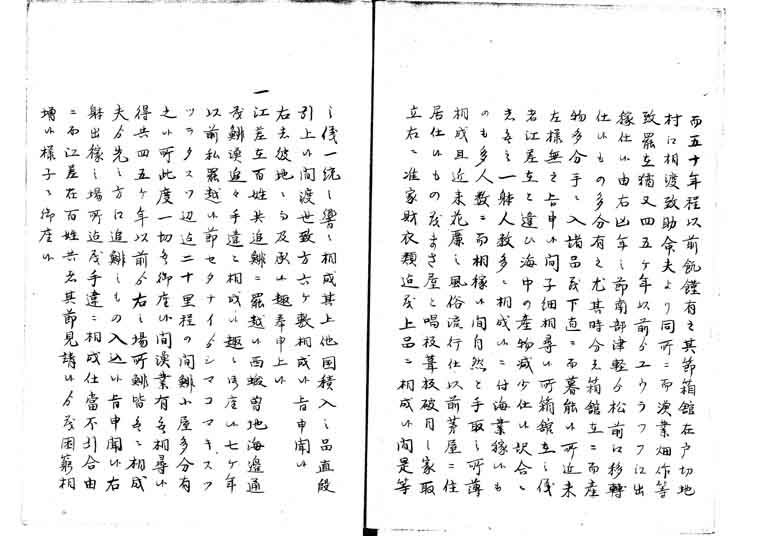 而五十年程以前飢饉有之其節箱館在戸切地
村江相渡致助命夫より同所ニ而漁業畑作等
致罷在猶又四五ケ年以前ゟユウラフ江出
稼仕候由右凶年之節南部津軽ゟ松前江移轉
仕候もの多分有之尤其時分者箱館ニ而産
物多分手ニ入諸品茂下直ニ而暮能候所近来
左様無之旨申候間子細相尋候所箱館在之儀
者江差在と違ひ海中の産物減少仕候訳合ニ
者無之一躰人数多ニ相成候ニ付海業稼候も
のも多人数ニ而相稼候間自然と手取之所薄
相成且近来花麗之風俗流行仕以前茅屋ニ住
居仕候もの茂まさ屋と唱板葺板破目之家取
立右ニ准家財衣類迄茂上品ニ相成候間是等
之儀一統之響ニ相成其上他国積入之品直段
引上候間渡世致方六ケ敷相成候旨申聞候
右者彼地ニ而及承候趣奉申上候
一
江差在百姓共追鯡ニ罷越候西蝦夷地海邊通
茂鯡漁追々手遠ニ相成候趣ニ御座候七ケ年
以前私罷越候節セタナイゟシマコマキスツ
ツヲタスツ辺迄二十里程の間鯡小屋多分有
之候所此度一切無御座候間漁業有無相尋候
得共四五ケ年以前ゟ右之場所鯡皆無ニ相成
夫ゟ先之方江追鯡之もの入込候旨申聞候右
躰出稼之場所迄茂手違ニ相成仕當不引合由
ニ而江差在百姓共者其節見請候ゟ茂困窮相
増候様子ニ御座候